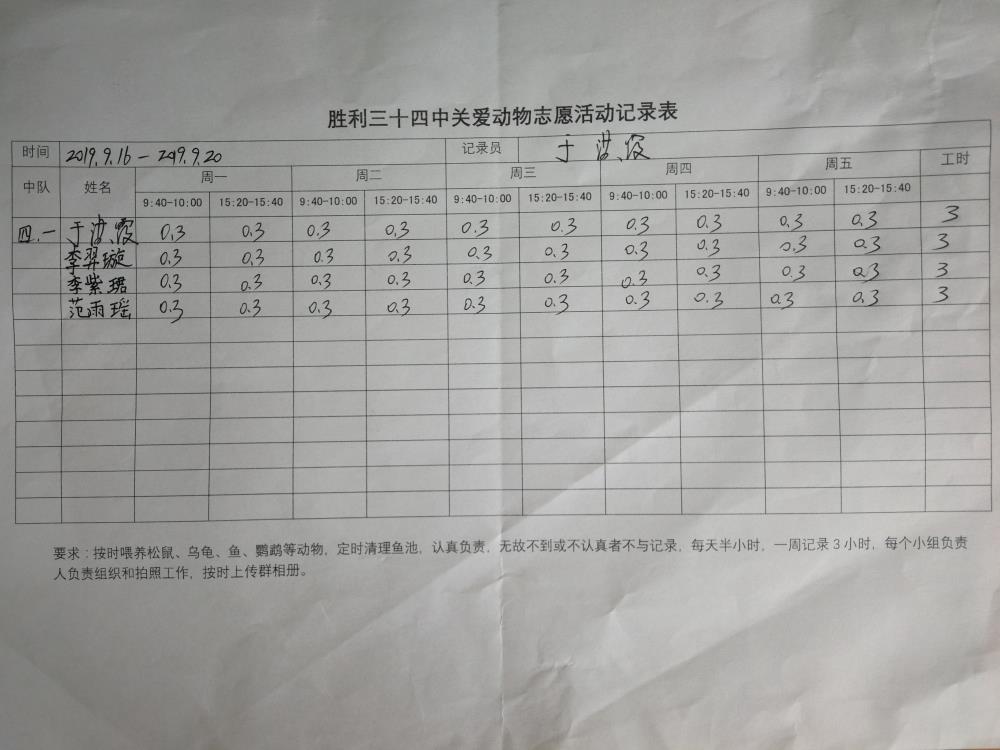 胜利三十四中关爱动物志愿活动记录表
时间 2019.9.16-2019.9.20 记录员 于洪霞
中队 姓名 周一 周二 周三 周四 周五 工时
9:40-10:00 15:20-15:40 9:40-10:00 15:20-15:40 9:40-10:00 15:20-15:40 9:40-10:00 15:20-15:40 9:40-10:00 15:20-15:40
四.一 于洪霞 0.3 0.3 0.3 0.3 0.3 0.3 0.3 0.3 0.3 0.3 3
李羿璇 0.3 0.3 0.3 0.3 0.3 0.3 0.3 0.3 0.3 0.3 3
李紫珺 0.3 0.3 0.3 0.3 0.3 0.3 0.3 0.3 0.3 0.3 3
范雨瑶 0.3 0.3 0.3 0.3 0.3 0.3 0.3 0.3 0.3 0.3 3
要求:按时喂养松鼠、乌龟、鱼、鹦鹉等动物,定时清理鱼池,认真负责,无故不到或不认真者不与记录,每天半小时,一周记录3小时,每个小组负责
人负责组织和拍照工作,按时上传群相册。